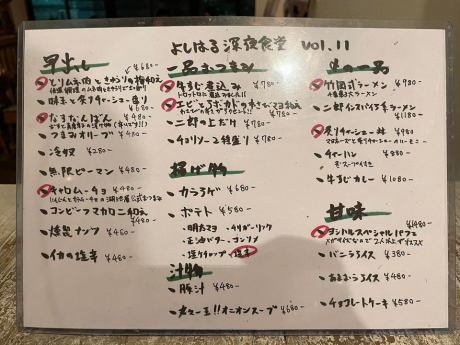 よしはる深夜食堂 vol.11
早出し
¥680-
とりムネ肉ときゅうりの梅和え
味玉と炙りチャーシュー盛り
¥680-
なすなんばん ¥480-
つまみオリーブ ¥480-
冷奴 ¥280-
無限ピーマン ¥480-
キャロムーチョ ¥480-
コンビーフマカロニ和え
¥480-
燻製ナッツ ¥480-
イカの塩辛 ¥480-
一品おつまみ
牛すじ煮込み ¥780-
エビとアボカドのわさびマヨ和え
¥780-
二郎の上だけ ¥780-
チョリソー2種盛り ¥780-
揚げ物
カラアゲ ¥680-
ポテト ¥580-
・明太マヨ ・ガーリック
・正油バター ・コンソメ
・塩
汁物
豚汁 ¥480-
君が一玉!!オニオンスープ ¥680-
止の一品
竹岡式ラーメン ¥930-
二郎インスパイア系ラーメン
¥1180-
炙りチャーシュー丼 ¥980-
チャーハン
スープ付き
牛すじカレー ¥1080-
甘味
¥1480-
ヨシハルスペシャルパフェ
バニラアイス ¥380-
あまおうアイス ¥480-
チョコレートケーキ ¥580-